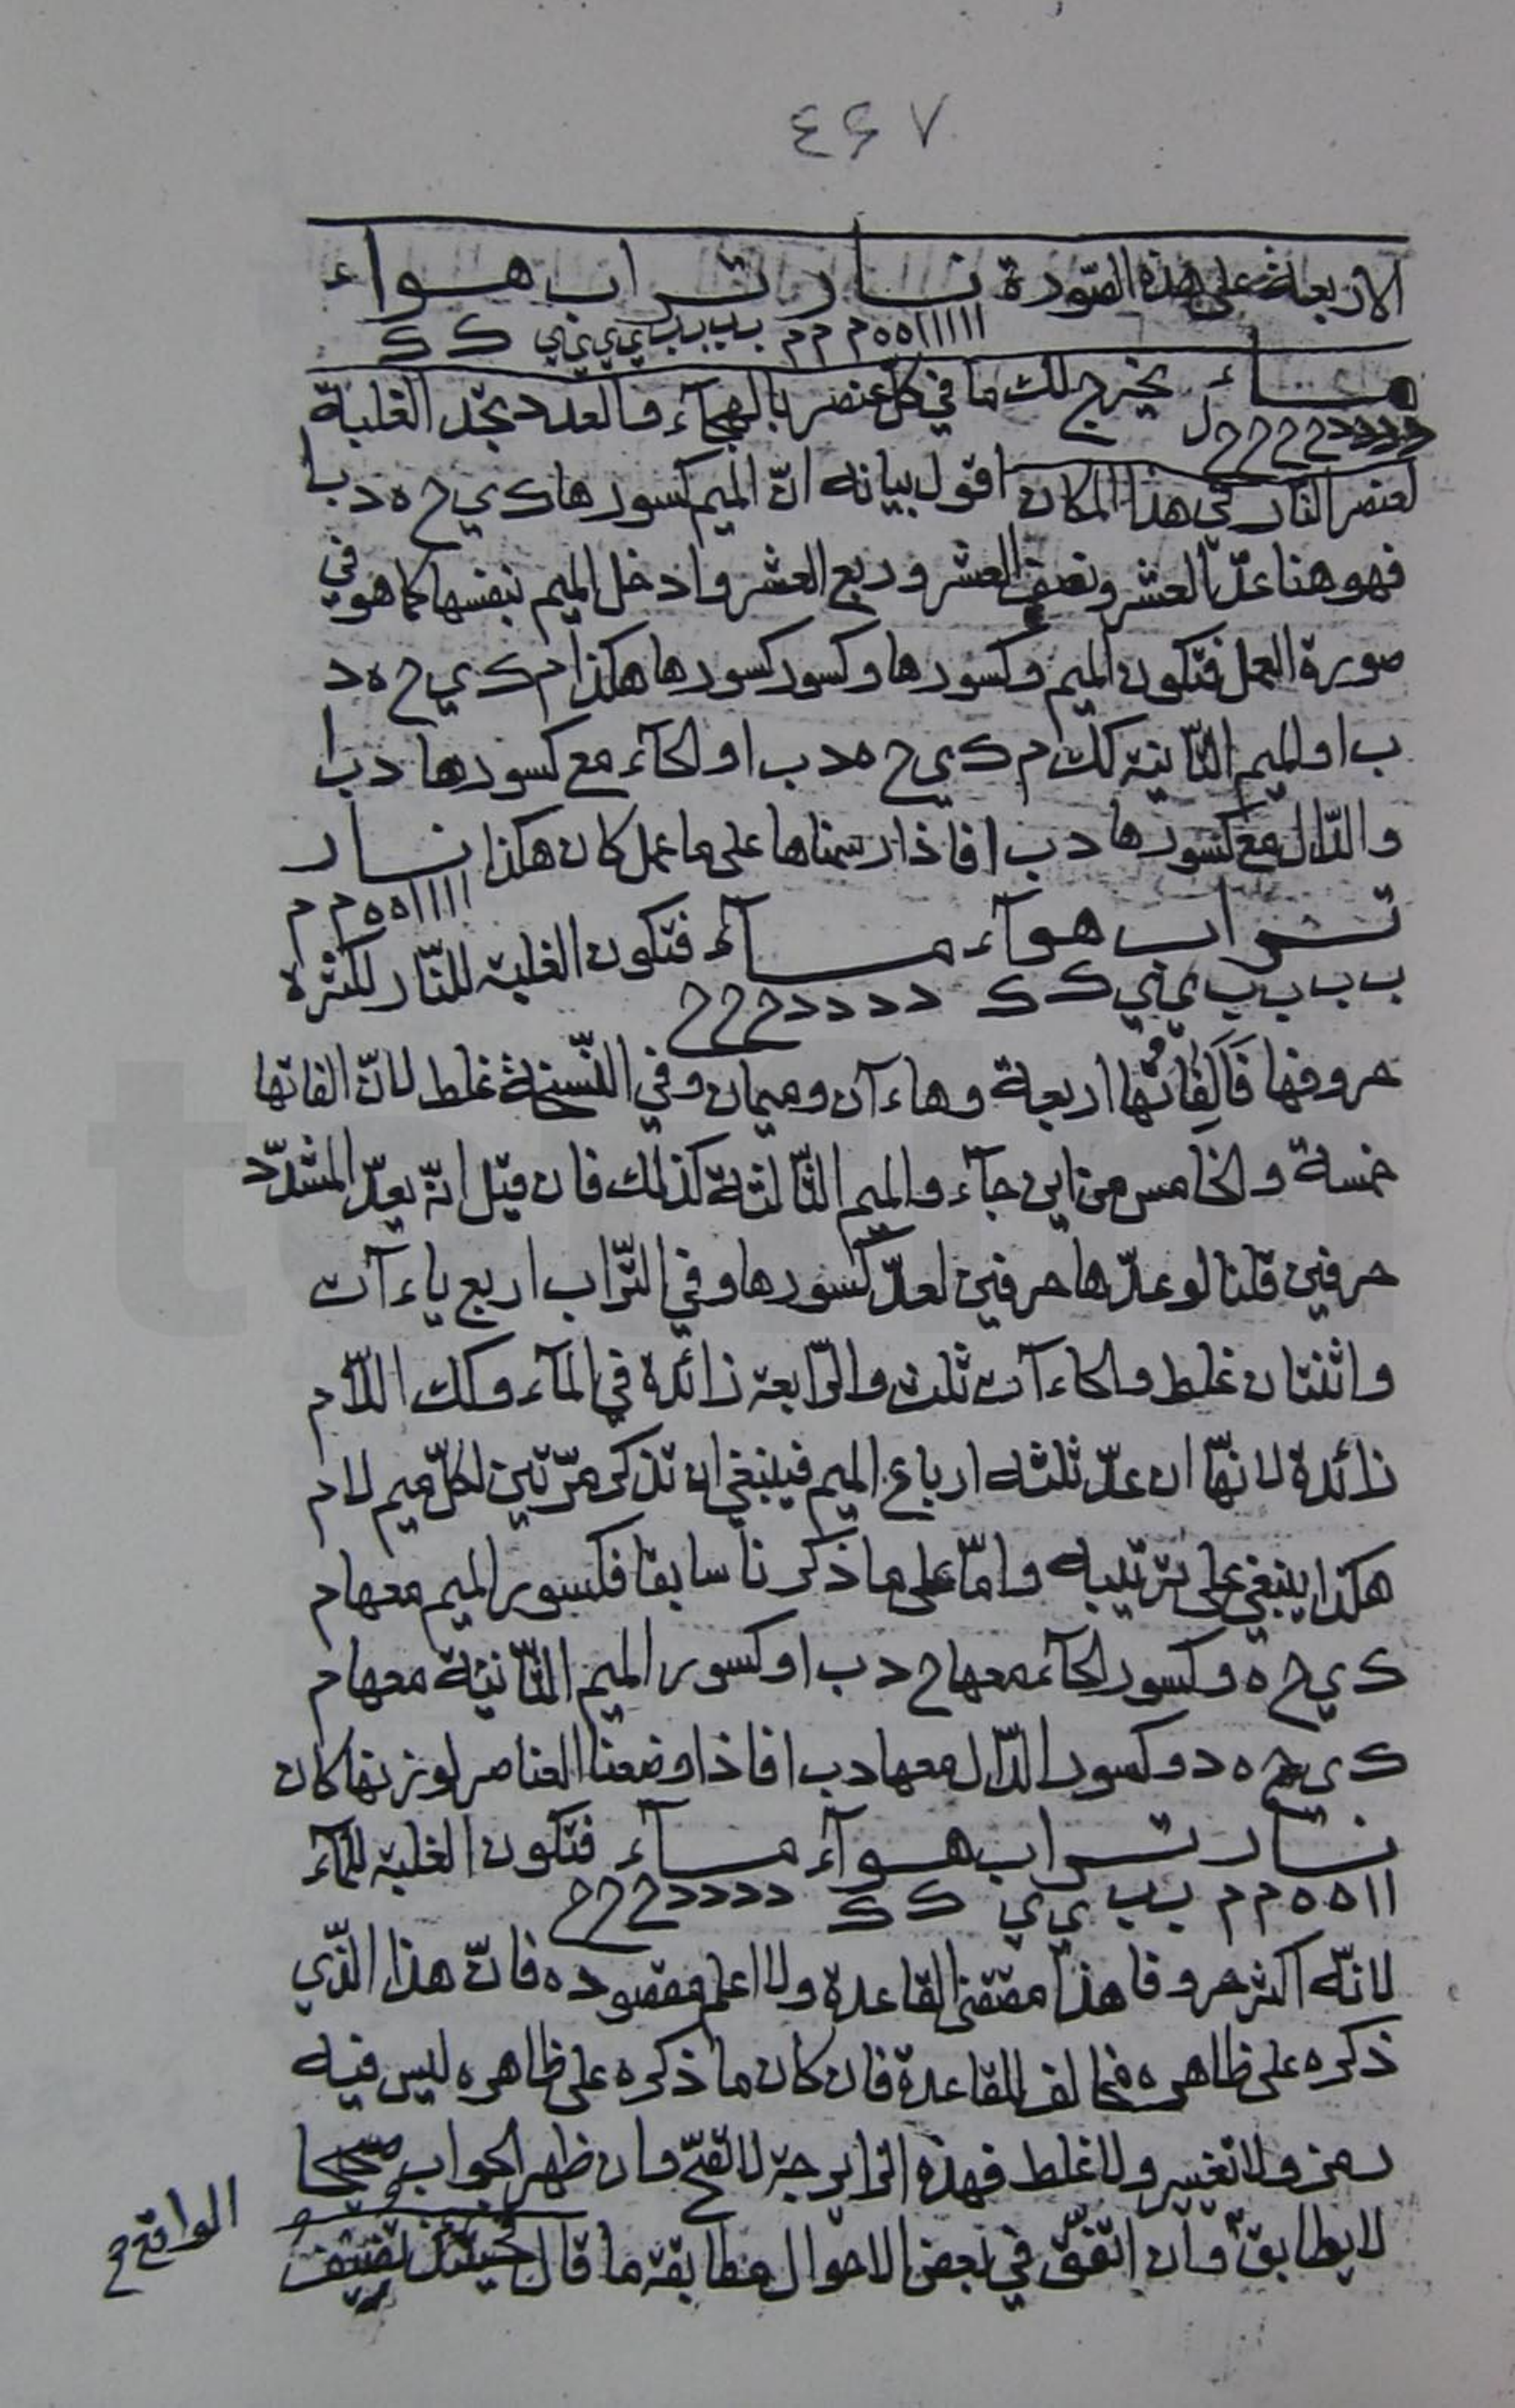 ٤٤٧
الاربعة على هذه الصّورة نار تراب هواء
اااااا ه ه م م م ب ب ب ب ي ي ي ي ك ك
ماء يخرج لك ما في كلّ عنصر بالهجآء والعدد تجد الغلبة
د د د د ح ح ح ح ل
لعنصر النّار في هذا المكان اقول بيانه انّ الميم كسورها ك ي ح ه د ب ا
فهو هنا عدّ العشر ونصف العشر وربع العشر وادخل الميم بنفسها كما هو في
صورة العمل فتكون الميم وكسورها وكسور كسورها هكذا م ك ي ح ه د
ب ا والميم الثّانية كك م ك ي ح ه د ب ا والحآء مع كسورها د ب ا
والدّال مع كسورها د ب ا فاذا رسمناها على ما عمل كان هكذا نار
اااا ه ه م م
تراب هوآء مآء فتكون الغلبة للنّار لكثرة
ب ب ب ب ي ي ك ك د د د د ح ح ح
حروفها فَاَلِفَاتُها اربعة وهاءآن وميمان وفي النّسخة غلط لانّ الفاتها
خمسة والخامس من اين جآء والميم الثّالثة كذلك فان قيل انّه يعدّ المشدّد
حرفين قلنا لو عدّها حرفين لعدّ كسورها وفي التّراب اربع ياءآت
واثنتان غلط والحاءآت ثلث والرّابعة زائدة في المآء وكك اللّام
زائدة لانّها ان عدّ ثلثة ارباع الميم فينبغي ان تذكر مرّتين لكلّ ميم لام
هكذا ينبغي على ترتيبه وامّا على ما ذكرنا سابقا فكسور الميم معها م
ك ي ح ه وكسور الحآء معها ح د ب ا وكسور الميم الثّانية معها م
ك ي ح ه د وكسور الدّال معها د ب ا فاذا وضعنا العناصر لوزنها كان
نار تراب هوآء مآء فتكون الغلبة للمآء
اا ه ه م م ب ب ي ي ك ك د د د د ح ح ح
لانّه اكثر حروفا هذا مقتضى القاعدة ولا اعلم مقصوده فانّ هذا الّذي
ذكره على ظاهره مخالف للقاعدة فان كان ما ذكره على ظاهره ليس فيه
رمز ولا تغيير ولا غلط فهذه الزايرجة لا تصحّ وان ظهر الجواب صحيحا
لا يطابق وان اتّفق في بعض الاحوال مطابقة ما قال حينئذ
الواقع